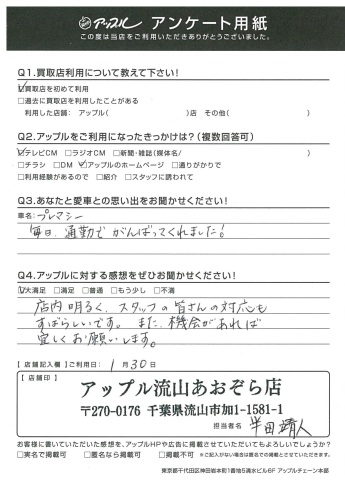 アップル アンケート用紙
この度は当店をご利用いただきありがとうございました。
Q1.買取店利用について教えて下さい!
☑買取店を初めて利用
□過去に買取店を利用したことがある
利用した店舗: アップル( )店 その他( )
Q2.アップルをご利用になったきっかけは?(複数回答可)
☑テレビCM □ラジオCM □新聞・雑誌(媒体名/ )
□チラシ □DM ☑アップルのホームページ □通りがかりで
□利用経験があるので □紹介 □スタッフに誘われて
Q3.あなたと愛車との思い出をお聞かせください!
車名:プレマシー
毎日、通勤でがんばってくれました!
Q4.アップルに対する感想をぜひお聞かせください!
☑大満足 □満足 □普通 □もう少し □不満
店内明るく、スタッフの皆さんの対応も
すばらしいです。また、機会があれば
宜しくお願いします。
【店舗記入欄】ご利用日: 1月30日
【店舗印】
アップル流山あおぞら店
〒270-0176 千葉県流山市加1-1581-1
担当者名 半田靖人
お客様に書いていただいた感想を、アップルHPや広告に掲載させていただいてもよろしいでしょうか?
□実名で掲載可 □匿名なら掲載可 □掲載不可 ※ご記入がない場合は匿名での掲載とさせていただきます。
東京都千代田区神田岩本町1番地5清水ビル6F アップルチェーン本部